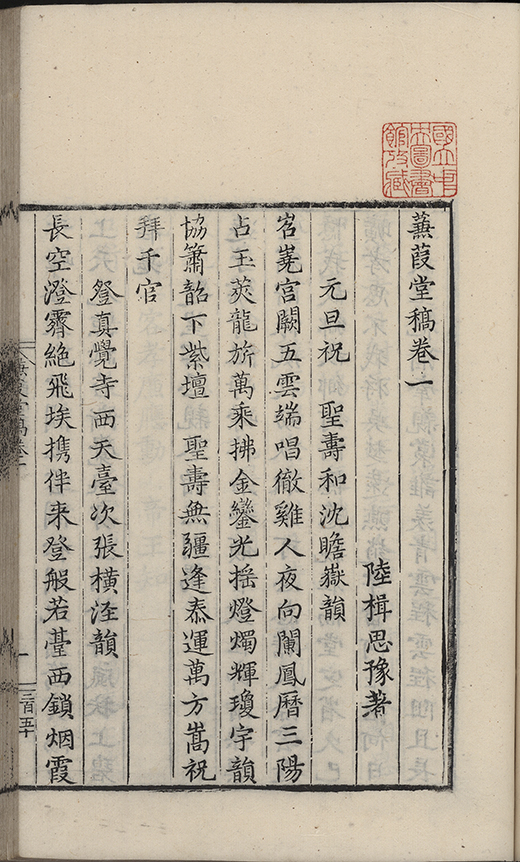 蒹葭堂稿卷一
陸楫思豫著
元旦祝 聖壽和沈瞻嶽韻
岧嶤宮闕五雲端唱徹雞人夜向闌鳳曆三陽
占玉莢龍旂萬乘拂金鑾光搖燈燭輝瓊宇韻
協簫韶下紫壇 聖壽無疆逢泰運萬方嵩祝
拜千官
登真覺寺西天臺次張橫涇韻
長空澄霽絶飛埃携伴来登般若臺西鎖烟霞
一
三百五十
國立中
央圖書
館收藏